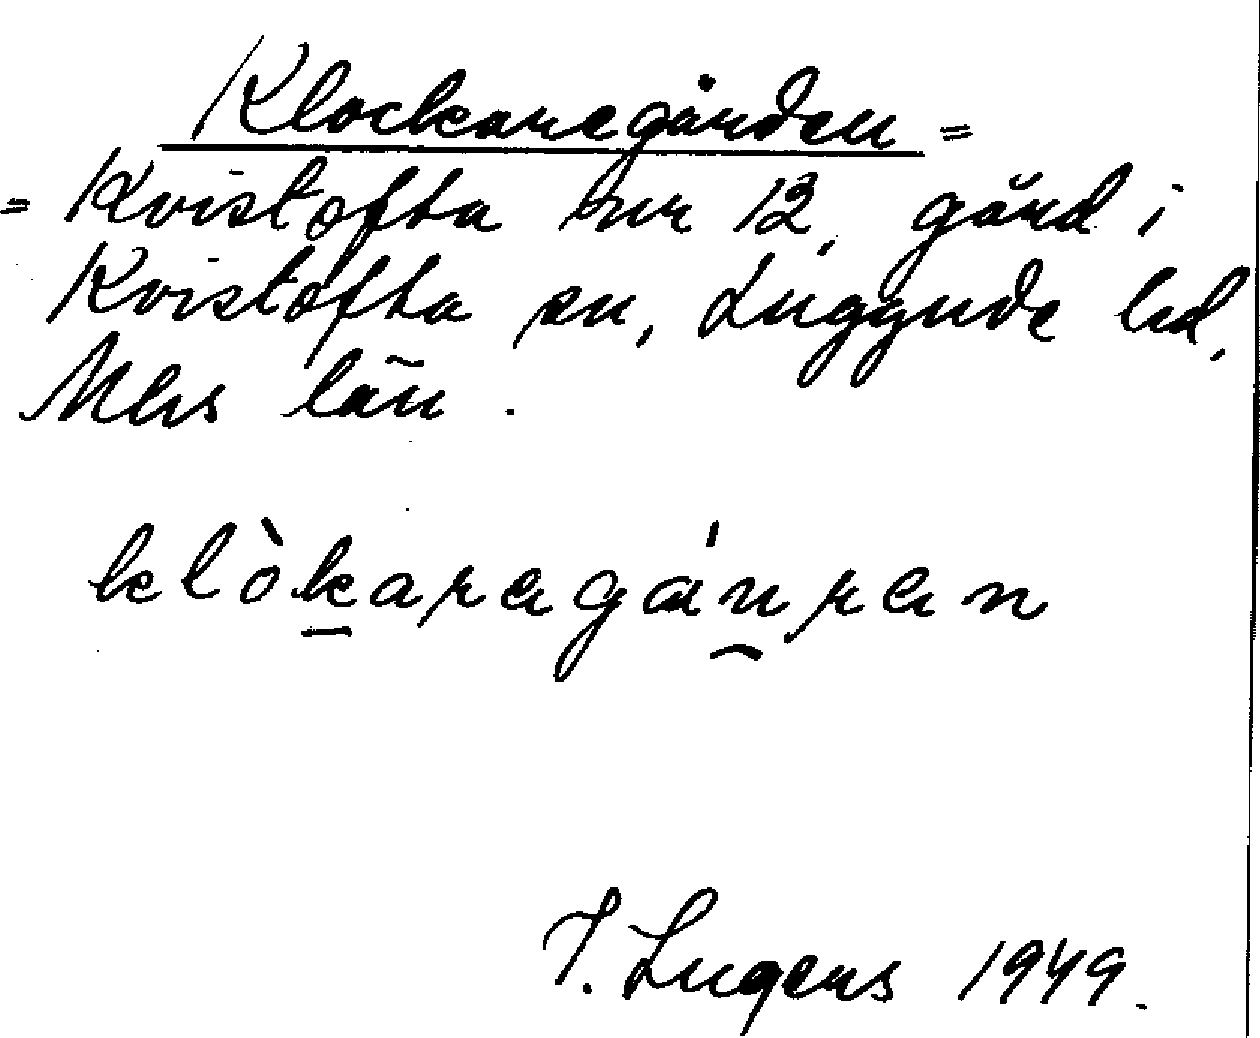 Klockaregården =
= Kvistofta nr 12, gård i
Kvistofta sn, Luggude hd,
Mlhs län.
klòkaregáʼnren
I. Ingers 1949.